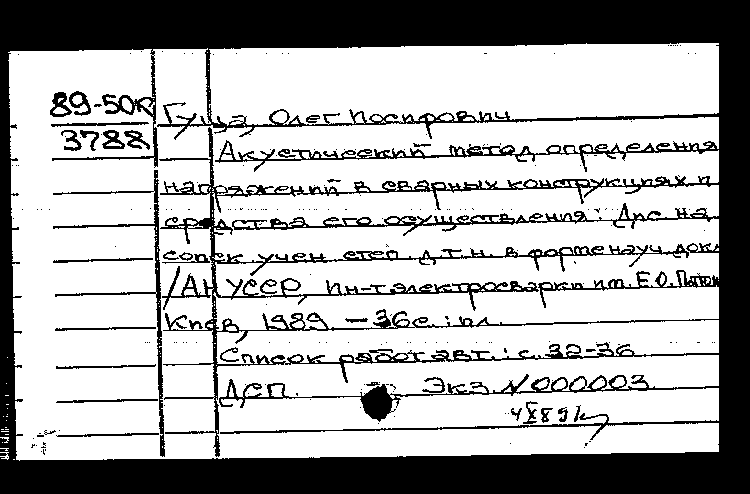 89-50к
3788
Гуща, Олег Иосифович
Акустический метод определения
напряжений в сварных конструкциях и
средства его осуществления: Дис на
соиск учен степ. д.т.н. в форме науч докл
/АН УССР, Ин-т электросварки им. Е.О. Патон
Киев, 1989. — 36с. : ил.
Список работ авт. : с. 32-36
ДСП. Экз. N 000003
4 X 89